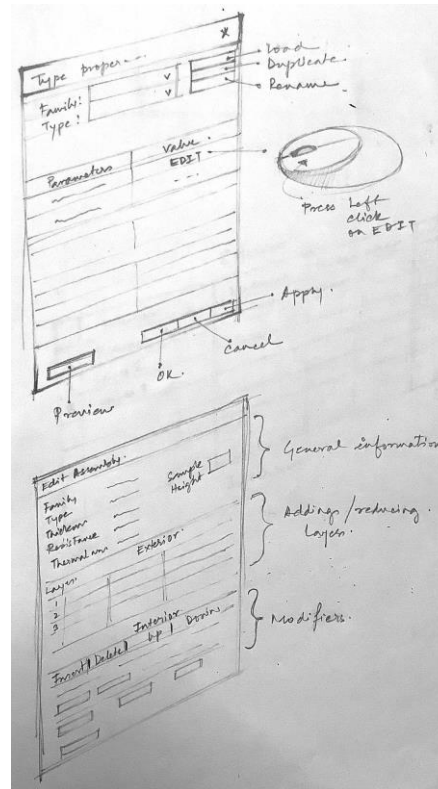 Type proper...
x
Load
Duplicate.
Rename
Family:
Type:
v
v
Parameters
Value.
EDIT
Press Left
click
on EDIT
Apply.
Cancel
OK.
Preview
Edit Assembly.
Family
Type
Thickness
Resistance
Thermal
Sample
Height
General information
Adding/reducing
Layers.
Exterior.
Layer.
1
2
3
Interior
Insert
Delete
Up
Down
Modifiers.